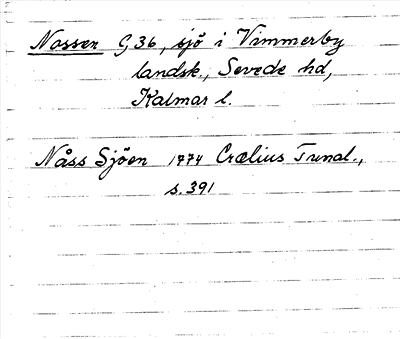 Nossen G,36, sjö i Vimmerby
landsk., Sevede hd,
Kalmar l.
Nåss Sjöen 1774 Crælius Tunal.,
s. 391